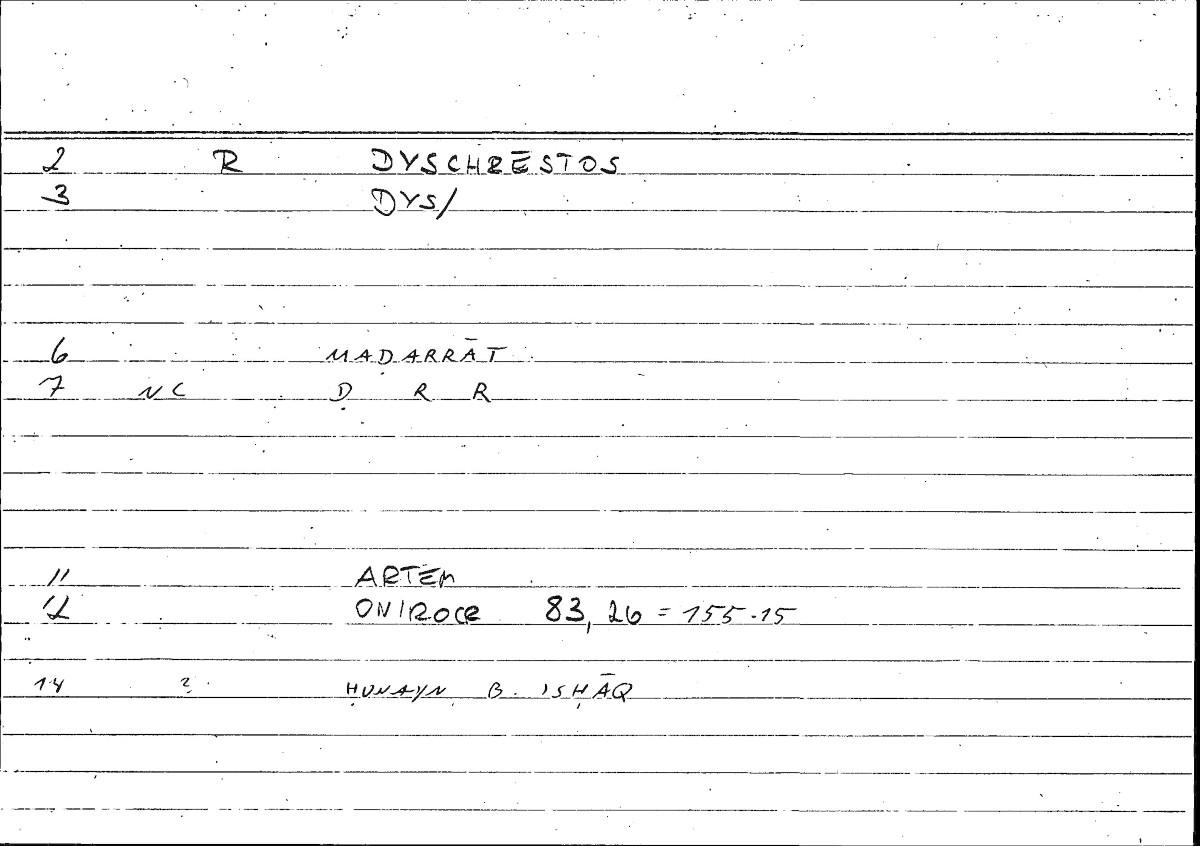 2 R DYSCHRĒSTOS
3 DYS/
6 MAḌARRĀT
7 NC Ḍ R R
11 ARTEM
12 ONIROCR 83, 26 = 155.15
14 ? ḤUNAYN B. ISḤĀQ